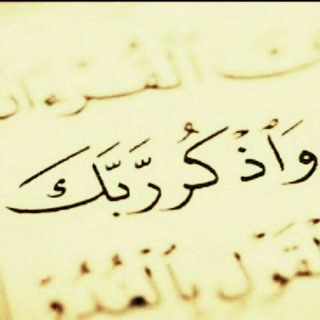 ٱلْقُرْءَانُ
وَٱذْكُر رَّبَّكَ
ٱلْقَوْلِ بِٱلْغُدُوِّ